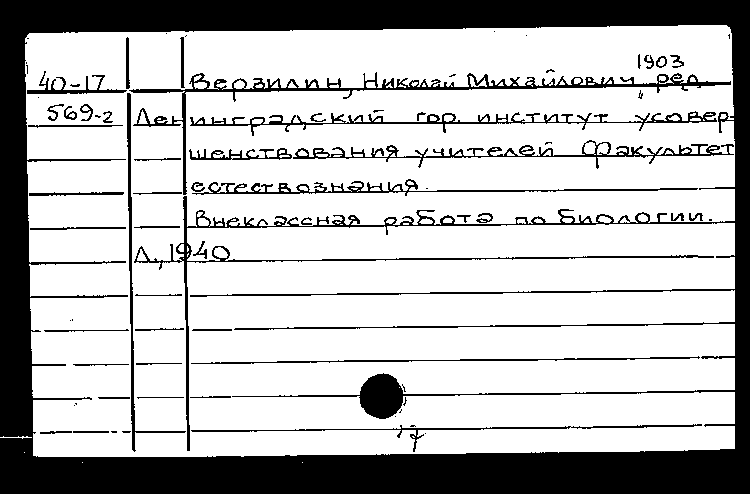 1903
40-17 Верзилин, Николай Михайлович, ред.
569-2 Ленинградский гор. институт усовер-
шенствования учителей Факультет
естествознания.
Внеклассная работа по биологии.
Л., 1940